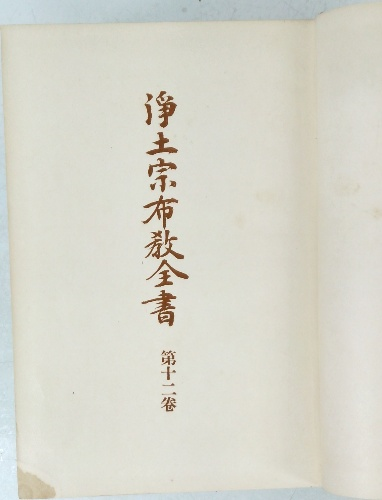 浄土宗布教全書
第十二卷